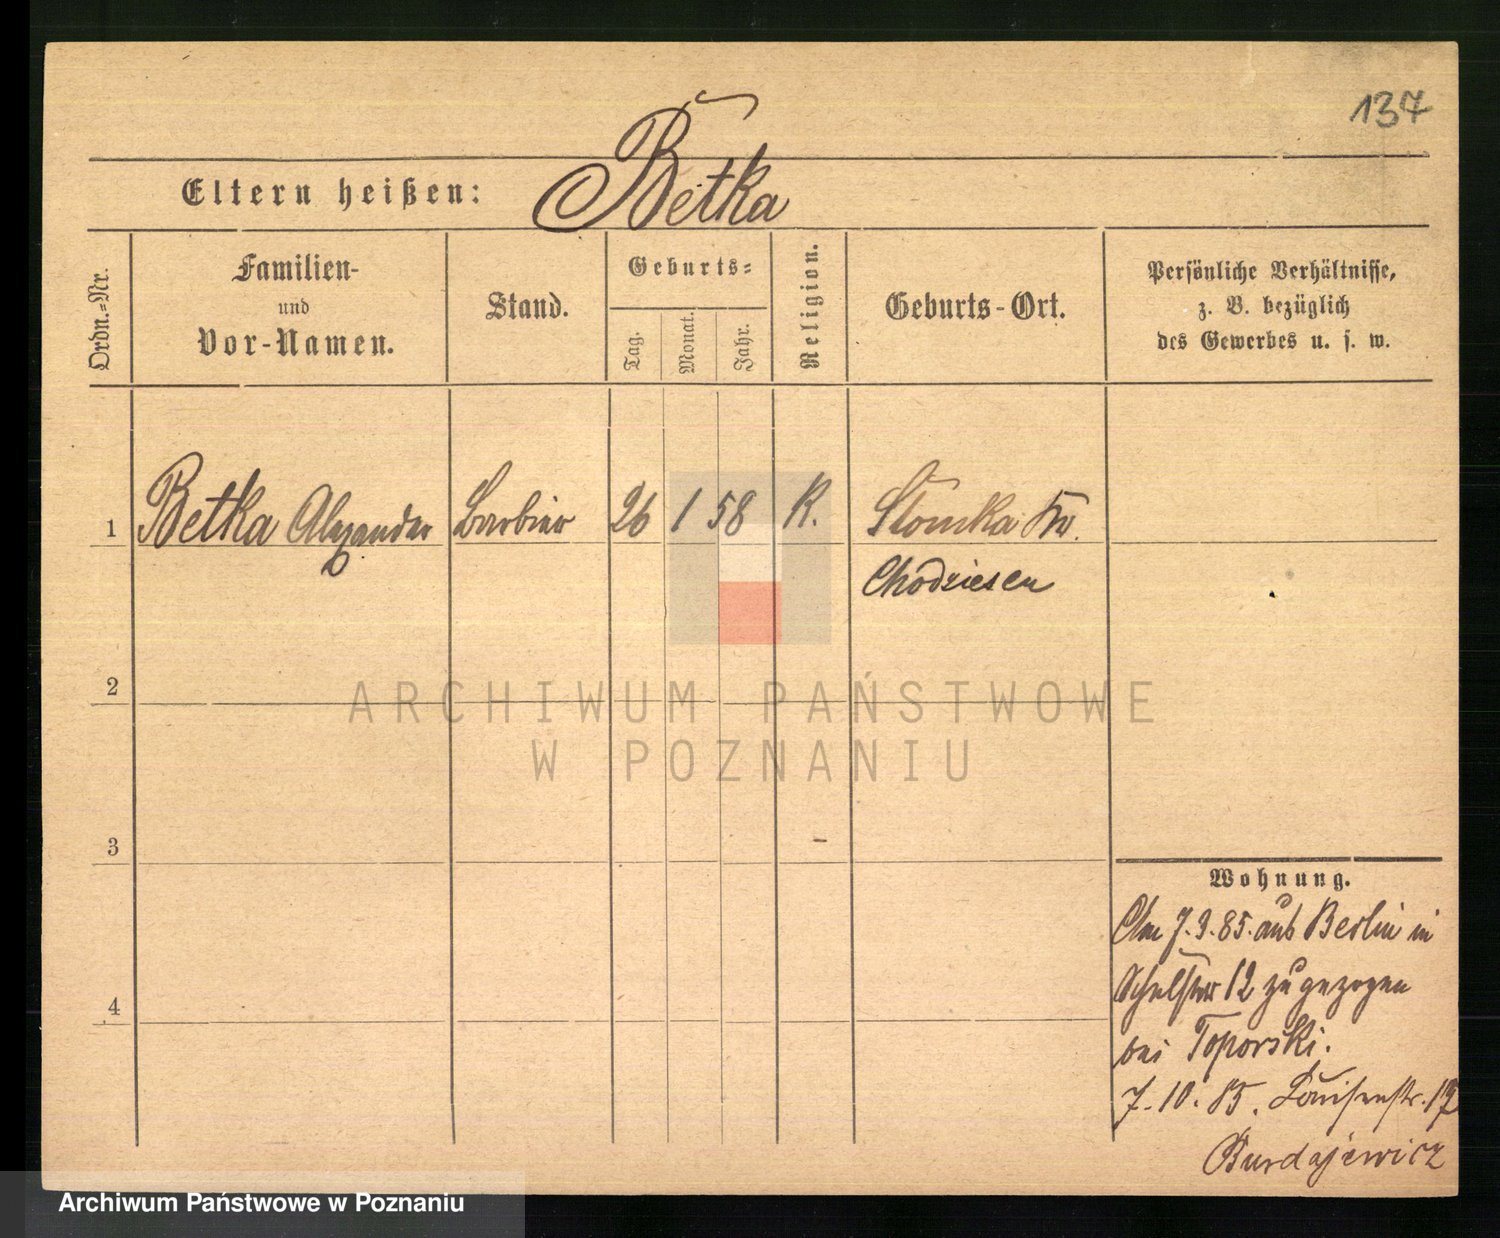 137
Eltern heißen: Betka
Ordn.-Nr.
Familien-
und
Vor-Namen.
Stand.
Geburts-
Tag.
Monat.
Jahr.
Religion.
Geburts-Ort.
Persönliche Verhältnisse,
z. B. bezüglich
des Gewerbes u. s. w.
1 Betka Alexander Barbier 26 1 58 K. Slomka Kr.
Chodziesen
2
ARCHIWUM PAŃSTWOWE
W POZNANIU
3
4
Wohnung.
Am 7.9.85. aus Berlin in
Schulstr 12 zugezogen
bei Toporski.
7.10.85. Louisenstr.
Burdajewicz
Archiwum Państwowe w Poznaniu